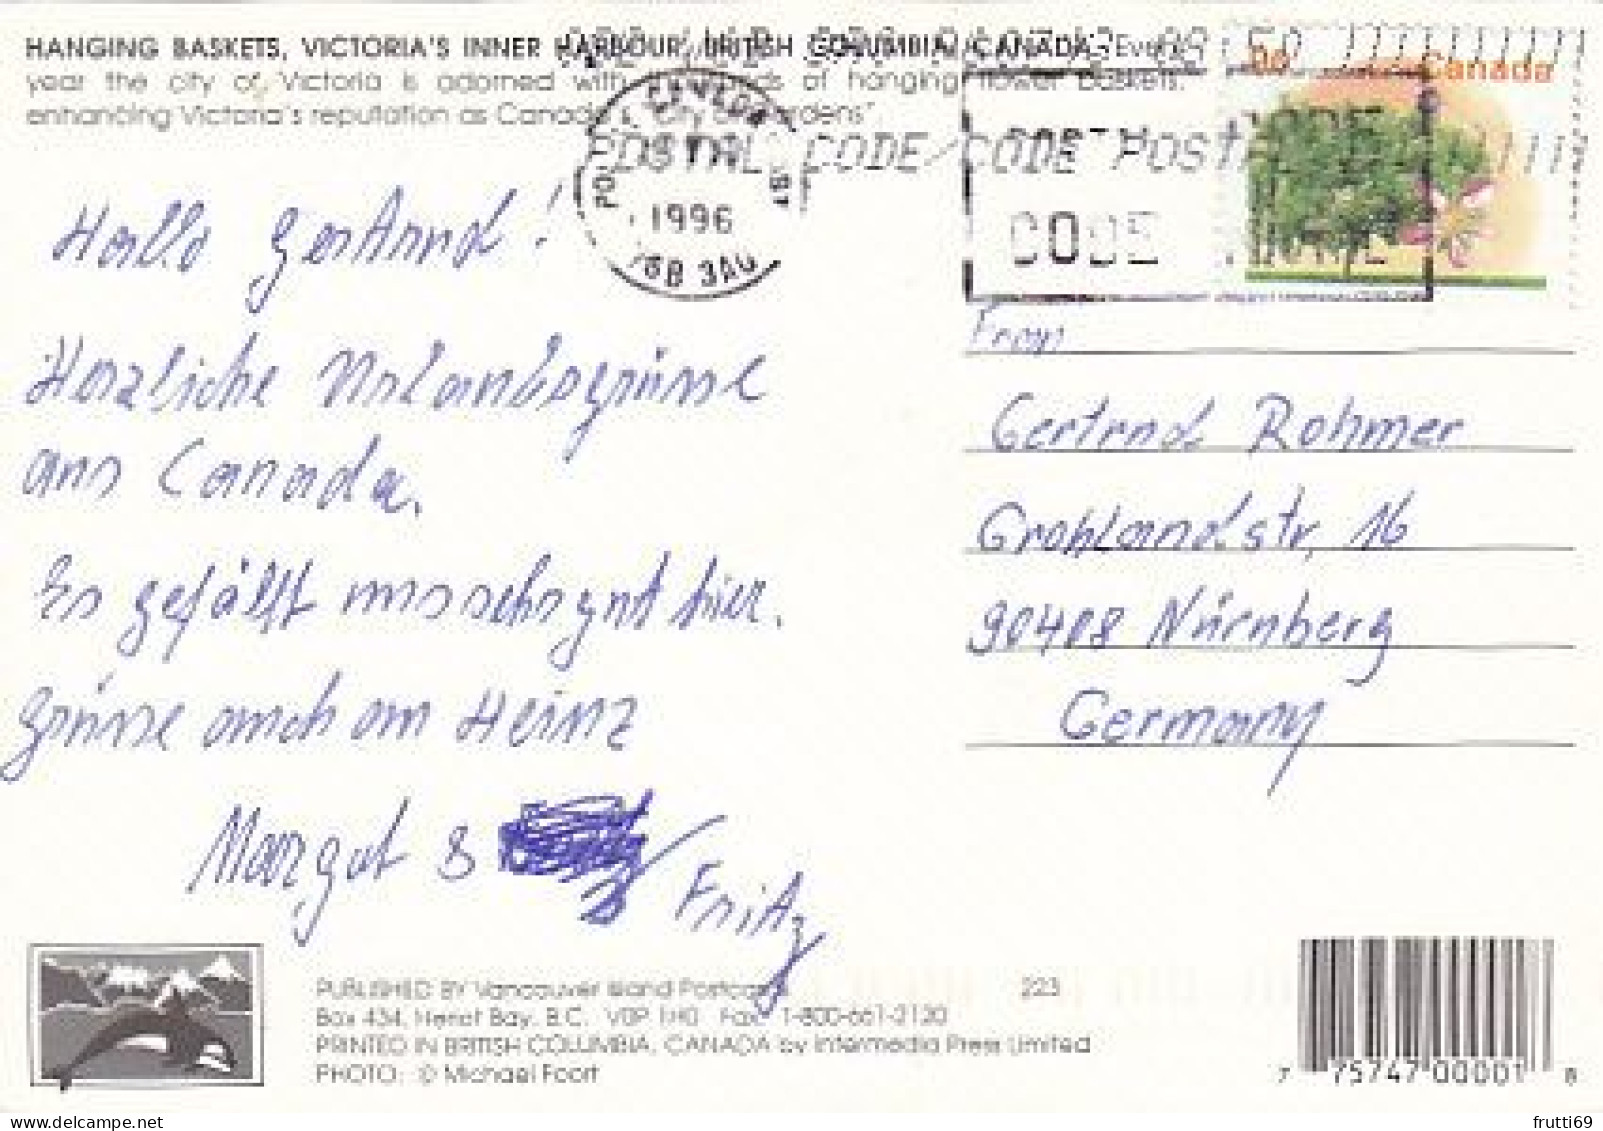 HANGING BASKETS, VICTORIA'S INNER HARBOUR, BRITISH COLUMBIA, CANADA - Every
year the city of Victoria is adorned with hundreds of hanging flower baskets,
enhancing Victoria's reputation as Canada's "City of Gardens".
Canada
POSTAL CODE/CODE POSTAL
1996
V8B 3A0
CODE
Hallo Gertrud!
Herzliche Urlaubsgrüsse
aus Canada.
Es gefällt uns sehr gut hier.
Grüsse auch an Heinz
Margut & Fritz
Frau
Gertrud Rohmer
Grohlandstr. 16
90408 Nürnberg
Germany
PUBLISHED BY Vancouver Island Postcards
223
Box 434, Heriot Bay, B.C. V0P 1H0 Fax: 1-800-661-2130
PRINTED IN BRITISH COLUMBIA, CANADA by Intermedia Press Limited
PHOTO: © Michael Foort
7 75747 00001 8
frutti69